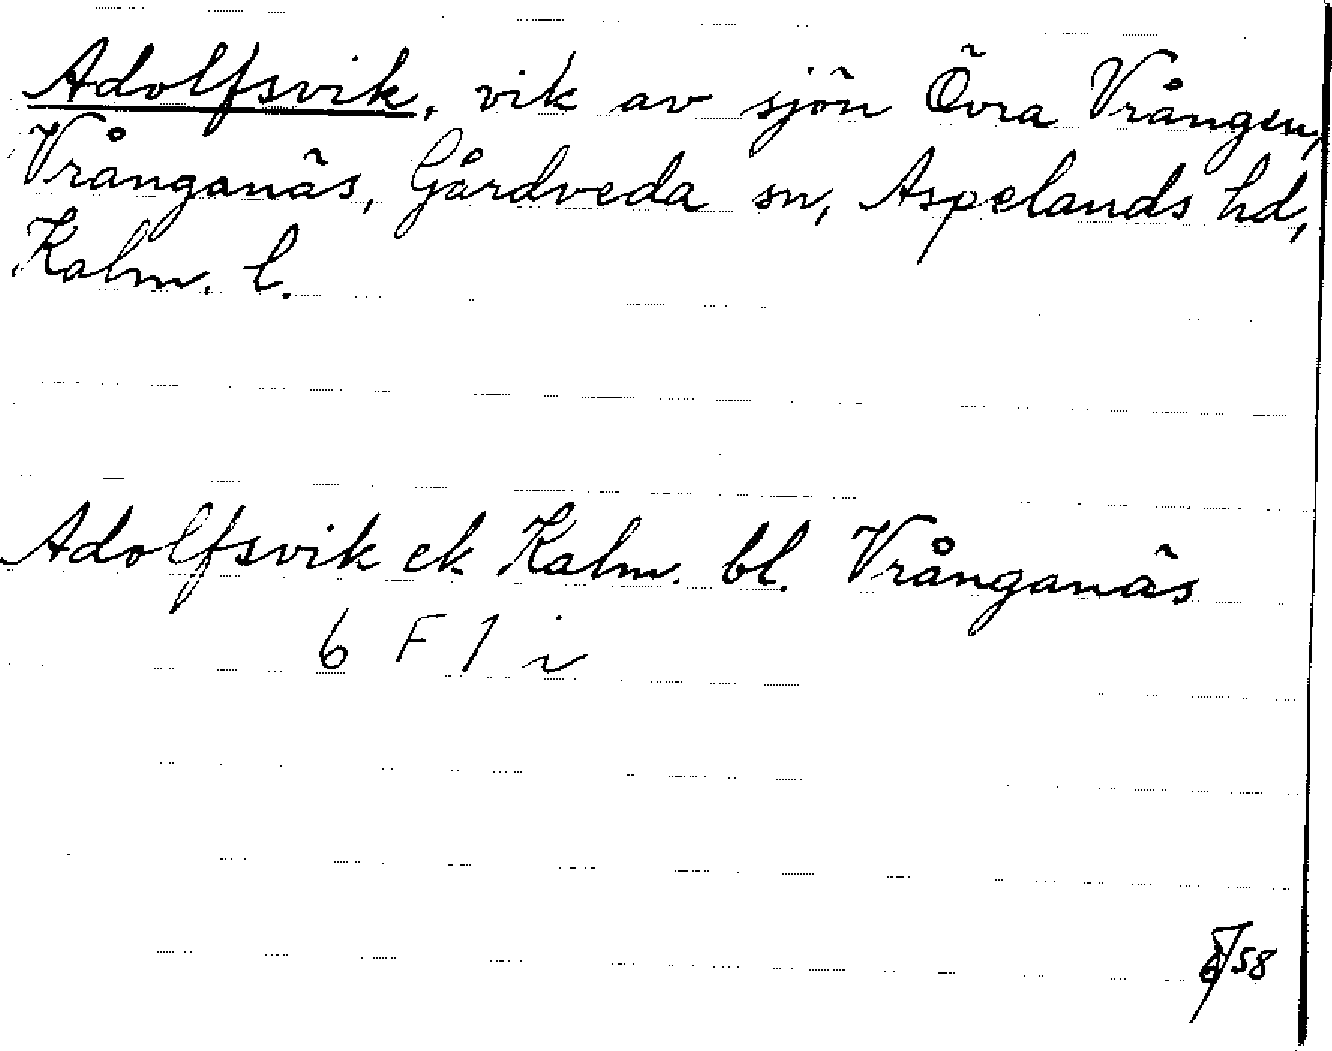 Adolfsvik, vik av sjön Övra Vrången,
Vrånganäs, Gårdveda sn, Aspelands hd,
Kalm. l.
Adolfsvik ek Kalm. bl. Vrånganäs
6 F 1 i
58